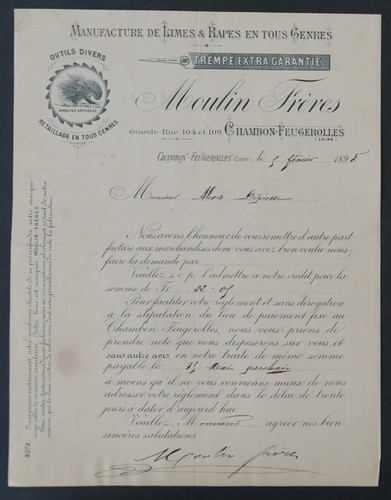 MANUFACTURE DE LIMES & RAPES EN TOUS GENRES
OUTILS DIVERS
RETAILLAGE EN TOUS GENRES
TREMPE EXTRA GARANTIE
Moulin Frères
Grande Rue 104 et 109, CHAMBON-FEUGEROLLES
(LOIRE)
CHAMBON-FEUGEROLLES (Loire), le 5 février 1898
Monsieur Alexis
Nous avons l'honneur de vous remettre d'autre part
facture aux marchandises dont vous avez bien voulu nous
faire la demande par
Veuillez s.v.p. l'admettre à notre crédit pour la
somme de Fr. 22-05
Pour faciliter votre règlement et sans dérogation
à la stipulation du lieu de paiement fixé au
Chambon-Feugerolles, nous vous prions de
prendre note que nous disposerons sur vous et
sans autre avis, en notre traite de même somme
payable le 15 Mai prochain
à moins qu'il ne vous convienne mieux de nous
adresser votre règlement dans le délai de trente
jours à dater d'aujourd'hui
Veuillez, Monsieur agréer nos bien
sincères salutations.
Moulin frères
NOTA